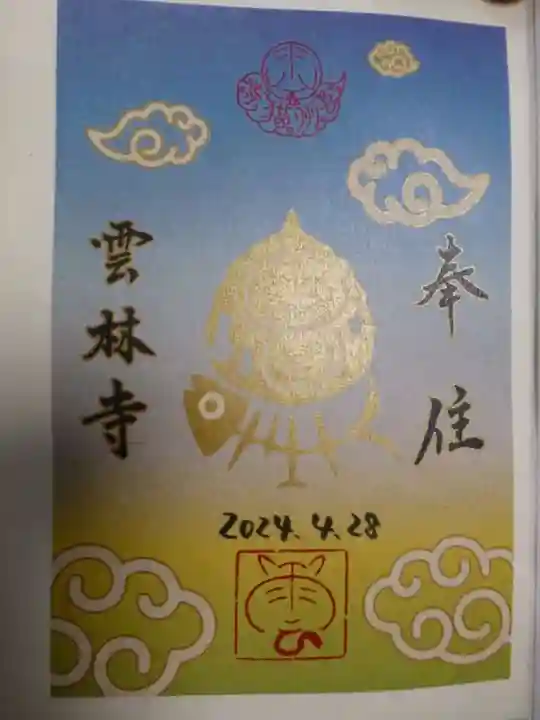 奉
住
雲林寺
2024.4.28